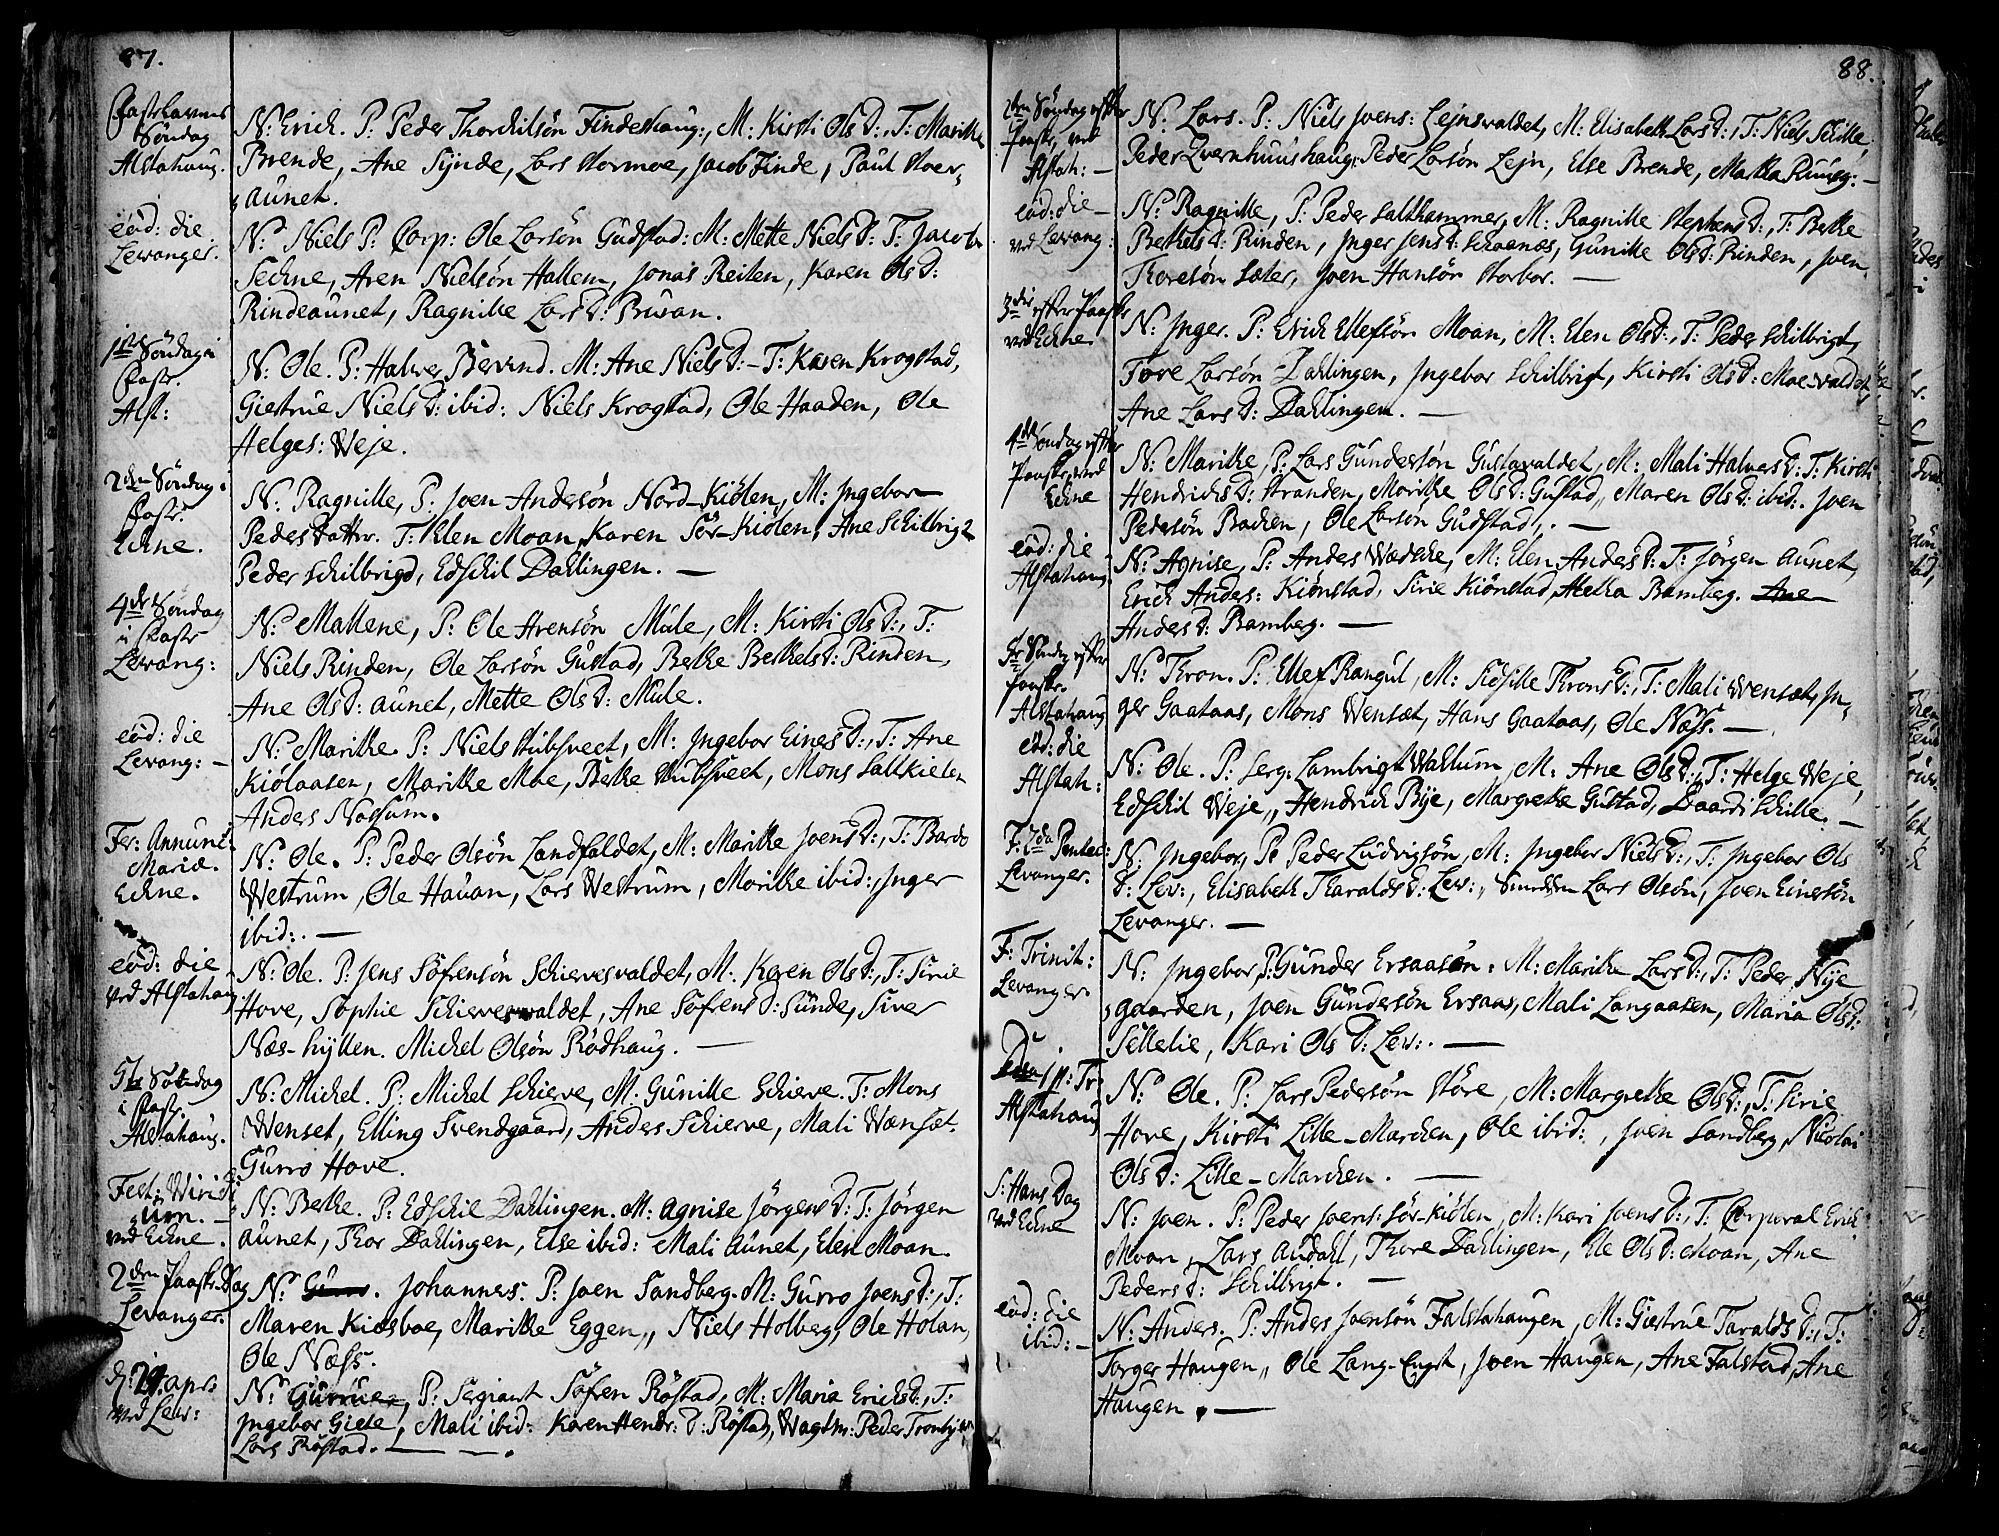 87.
Fastelavns
Söndag
Alstahaug.
N: Erich. P: Peder Thorchilsön Findeshaug:, M: Kirsti Ols D:, T: Maritte
Brende, Ane Synde, Lars Stormoe, Jacob Finde, Paul Stoer-
aunet.
eod: die
Levanger.
N: Niels P: Corp: Ole Larsön Gudstad: M: Mette Niels D: T: Jacob
Aren Nielsön Hallem, Jonas Reiten, Karen Ols D:
Rindeaunet, Ragnille Lars D: Prusan.
1ste Söndag i
Fast:
Alst:
N: Ole. P: Halver Bervend. M: Ane Niels D:- T: Karen Krogstad,
Giertrue Niels D: ibid: Niels Krogstad, Ole Haaden, Ole
Helges: Weje.
2den Söndag i
Fast:
Echne.
N: Ragnille, P: Joen Andersön Nord-Kiölen, M: Ingebor
Pedersdatter. T: Elen Moan, Karen Sör-Kiölen, Ane Schilbrigt
Peder Schilbrigd, Edschil Dahlingen. —
4de Söndag
i Fast
Levang:
N: Mallene, P: Ole Arensön Mule, M: Kirsti Ols D:, T:
Niels Rinden, Ole Larsön Gustad, Berthe Berthels D: Rinden,
Ane Ols D: aunet, Mette Ols D: Mule.
eod: die
Levang: —
N: Marithe. P: Niels Stubsveet, M: Ingebor Einers D:, T: Ane
Kiölaasen, Marithe Moe, Berthe Stubsveet, Mons Saltkielen
Anders Nossum.
Fer: Annunc:
Mariæ.
Echne.
N: Ole. P: Peder Olsön Landfaldet, M: Marithe Joens D:, T: Bardo
Westrum, Ole Hauan, Lars Westrum, Marithe ibid:, Inger
ibid:. —
eod: die
ved Alstahaug
N: Ole. P: Jens Söfrensön Schiervesvaldet, M: Karen Ols D:, T: Sirie
Hove, Sophie Schiervesvaldet, Ane Söfrens D: Sunde, Siver
Næs-hyllen. Michel Olsön Rödhaug. —
5te Söndag
i Fast.
Alstahaug.
N: Michel. P: Michel Schierve, M: Gunille Schierve. T: Mons
Wenset, Elling Svendgaard, Anders Schierve, Mali Wænsæt.
Gurro Hove.
Fest: Viridi
um. —
ved Echne.
N: Berthe. P: Edschil Dahlingen. M: Agnise Jörgens D: T: Jörgen
aunet, Thor Dahlingen, Else ibid: Mali Aunet, Elen Moan.
2den Paaske Dag
Levanger.
N: Gurro. Johannes. P: Joen Sandberg. M: Gurro Joens D:, T:
Maren Kiösboe, Marithe Eggen, Niels Holberg, Ole Holan,
Ole Næss.
d: 29 apr:
ved Lev:
N: Gurrue, P: Sergiant Söfren Röstad, M: Maria Erichs D:, T:
Ingebor Giete, Mali ibid: Karen Hendr: D: Röstad, Wagtm: Peder
Lars Röstad. —
88.
2den Söndag efter
Paaske, ved
Alstah: —
N: Lars. P: Niels Joens: Lejnsvaldet, M: Elisabeth Lars D:, T: Niels Schille,
Peder Qvernhuushaug: Peder Larsön Lejn, Else Brende, Martha Ruusg: —
eod: die —
ved Levang:
N: Ragnille, P: Peder Salthammer, M: Ragnille Stephens D:, T: Berthe
Berthels D: Rinden, Inger Jens D: Schaanæs, Gunille Ols D: Rinden, Joen
Thoresön Sæter, Joen Hansön Storbor. —
3die efter Paaske
ved Echne.
N: Inger. P: Erich Ellefsön Moan, M: Elen Ols D:, T: Peder Schilbrigt,
Tore Larsön Dahlingen, Ingebor Schilbrigt, Kirsti Ols D: Moe-valdet,
Ane Lars D: Dahlingen. —
4de Söndag efter
Paaske, ved
Echne
N: Marithe, P: Lars Gundersön Gustavaldet, M: Mali Halvers D: T: Kirsti
Hendrichs D: Stranden, Marithe Ols D: Gustad, Maren Ols D: ibid:. Joen
Pedersön Bachen, Ole Larsön Gudstad,. —
eod: die
Alstahaug
N: Agnise, P: Anders Wædsche, M: Elen Anders D: T: Jörgen aunet,
Erich Anders: Kiönstad, Sirie Kiönstad, Metha Bamberg. Ane
Anders D: Bamberg. —
5te Söndag efter
Paaske.
Alstahaug
N: Thron. P: Ellef Rangul, M: Sidsille Throns D:, T: Mali Wensæt, In-
ger Gaataas, Mons Wensæt, Hans Gaataas, Ole Næss. —
eod: die
Alstah:
N: Ole. P: Serg: Lambrigt Wallum, M: Ane Ols D:, T: Helge Weje,
Edschil Weje, Hendrich Bye, Margrethe Gustad, Baardi Schille. —
F: 2da Pentec:
Levanger.
N: Ingebor, P: Peder Ludvigsön, M: Ingebor Niels D:, T: Ingebor Ols
D: Lev:, Elisabeth Tharalds D: Lev:, Smeden Lars Olsön, Joen Einersön
Levanger. —
F: Trinit:
Levanger.
N: Ingebor, P: Gunder Ersaasen. M: Marithe Lars D:, T: Peder Nye
gaarden, Joen Gundersön Ersaas, Mali Langaasen, Maria Ols D:
Sellelie, Kari Ols D: Lev:. —
p: Tr:
Alstahaug
N: Ole. P: Lars Pedersön Störe, M: Margrethe Ols D:, T: Sirie
Hove, Kirsti Lille-Marchen, Ole ibid:, Joen Sandberg, Nicolai
Ols D: Lille-Marchen. —
S: Hans Dag
ved Echne
N: Joen. P: Peder Joens: Sör-Kiölen, M: Kari Joens D:, T: Corporal Erich
Moan, Lars Audahl, Thore Dahlingen, Ele Ols D: Moan, Ane
Peders D: Schilbrigt. —
eod: die
ibid: —
N: Anders. P: Anders Joensön Falstahaugen, M: Giertrue Taralds D:, T:
Torger Haugen, Ole Lang-Engst, Joen Haugen, Ane Falstad, Ane
Haugen. —